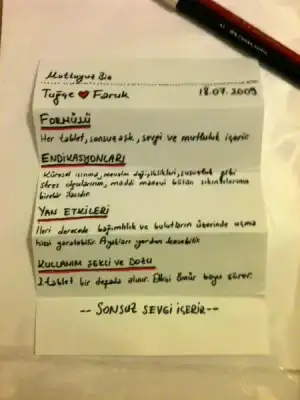 Mutluyuz Biz
Tuğçe ❤ Faruk 18.07.2009
FORMÜLÜ
Her tablet, sonsuz aşk, sevgi ve mutluluk içerir.
ENDİKASYONLARI
Küresel ısınma, mevsim değişiklikleri, susuzluk gibi
stres olgularının, maddi manevi bütün sıkıntılarının
birebir ilacıdır.
YAN ETKİLERİ
İleri derecede bağımlılık ve bulutların üzerinde uçma
hissi yaratabilir. Ayakları yerden kesebilir.
KULLANIM ŞEKLİ VE DOZU
2 tablet bir defada alınır. Etkisi ömür boyu sürer.
-- SONSUZ SEVGİ İÇERİR --